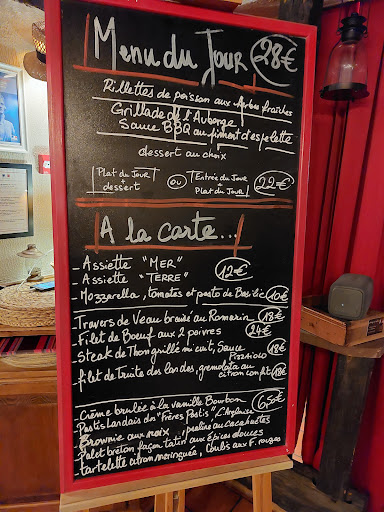 Menu du Jour 28€
Rillettes de poisson aux herbes fraîches
Grillade de l'Auberge
Sauce BBQ au piment d'espelette
dessert au choix
Plat du Jour + dessert ou Entrée du Jour + Plat du Jour 22€
A la carte...
_ Assiette "MER"
_ Assiette "TERRE" 12€
_ Mozzarella, tomates et pesto de Basilic 10€
_ Travers de Veau braisé au Romarin 18€
_ Filet de Boeuf aux 2 poivres 24€
_ Steak de Thon grillé mi cuit, Sauce Pizzaiolo 18€
_ filet de Truite des Landes, gremolata au citron confit 18€
_ Crème brulée à la vanille Bourbon 6,50€
Pastis Landais dns "Frères Pastis" C. Anglaise
Brownie aux noix, praline au cacahuètes
Palet breton façon tatin aux Épices douces
tartelette citron meringuée, Coulis aux F. rouges